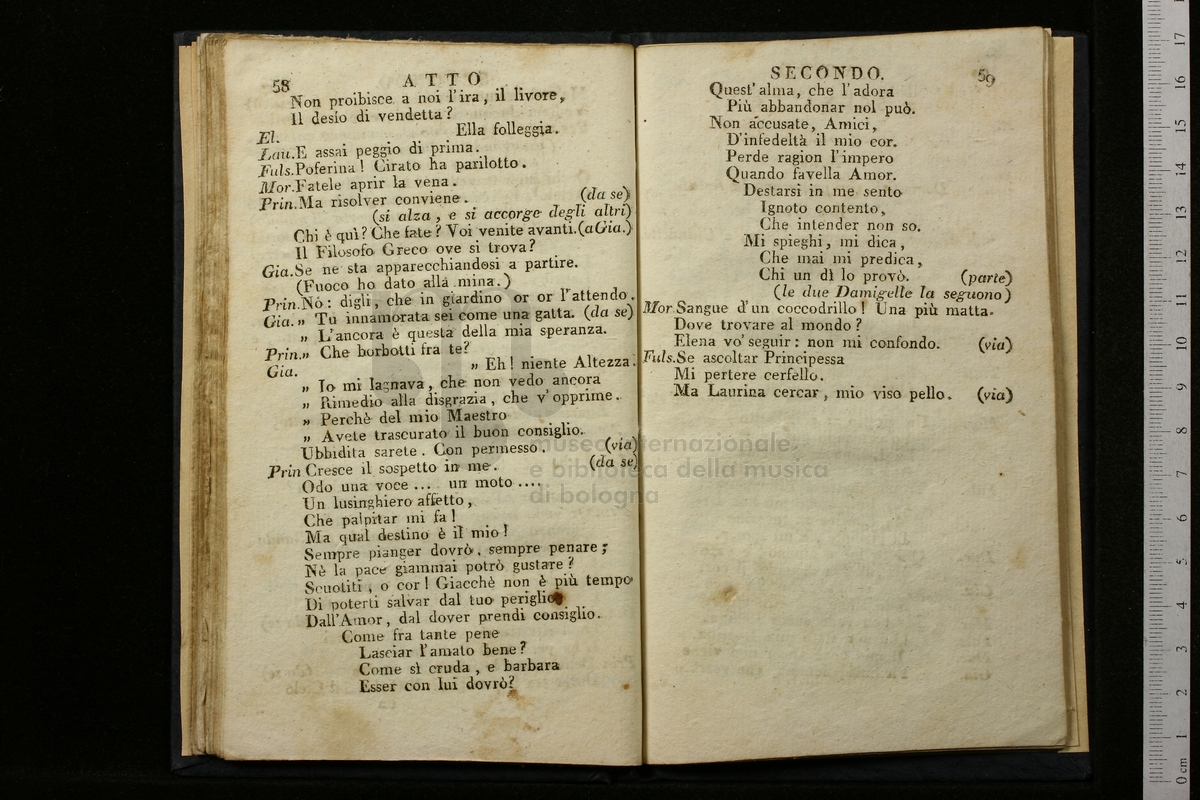 58 ATTO
Non proibisce a noi l'ira, il livore,
Il desio di vendetta?
El. Ella folleggia.
Lau. E assai peggio di prima.
Fuls. Poferina! Cirato ha parilotto.
Mor. Fatele aprir la vena.
Prin. Ma risolver conviene. (da se)
(si alza, e si accorge degli altri)
Chi è quì? Che fate? Voi venite avanti. (a Gia.)
Il Filosofo Greco ove si trova?
Gia. Se ne sta apparecchiandosi a partire.
(Fuoco ho dato alla mina.)
Prin. Nò: digli, che in giardino or or l'attendo.
Gia. „ Tu innamorata sei come una gatta. (da se)
„ L'ancora è questa della mia speranza.
Prin. „ Che borbotti fra te?
Gia. „ Eh! niente Altezza.
„ Io mi lagnava, che non vedo ancora
„ Rimedio alla disgrazia, che v'opprime.
„ Perchè del mio Maestro
„ Avete trascurato il buon consiglio.
Ubbidita sarete. Con permesso. (via)
Prin Cresce il sospetto in me. (da se)
Odo una voce ... un moto ....
Un lusinghiero affetto,
Che palpitar mi fa!
Ma qual destino è il mio!
Sempre pianger dovrò, sempre penare;
Nè la pace giammai potrò gustare?
Scuotiti, o cor! Giacchè non è più tempo
Di poterti salvar dal tuo periglio
Dall'Amor, dal dover prendi consiglio.
Come fra tante pene
Lasciar l'amato bene?
Come sì cruda, e barbara
Esser con lui dovrò?
SECONDO. 59
Quest'alma, che l'adora
Più abbandonar nol può.
Non accusate, Amici,
D'infedeltà il mio cor.
Perde ragion l'impero
Quando favella Amor.
Destarsi in me sento
Ignoto contento,
Che intender non so.
Mi spieghi, mi dica,
Che mai mi predica,
Chi un dì lo provò. (parte)
(le due Damigelle la seguono)
Mor Sangue d'un coccodrillo! Una più matta.
Dove trovare al mondo?
Elena vo' seguir: non mi confondo. (via)
Fuls. Se ascoltar Principessa
Mi pertere cerfello.
Ma Laurina cercar, mio viso pello. (via)
museo internazionale
e biblioteca della musica
di bologna
0 cm 1 2 3 4 5 6 7 8 9 10 11 12 13 14 15 16 17